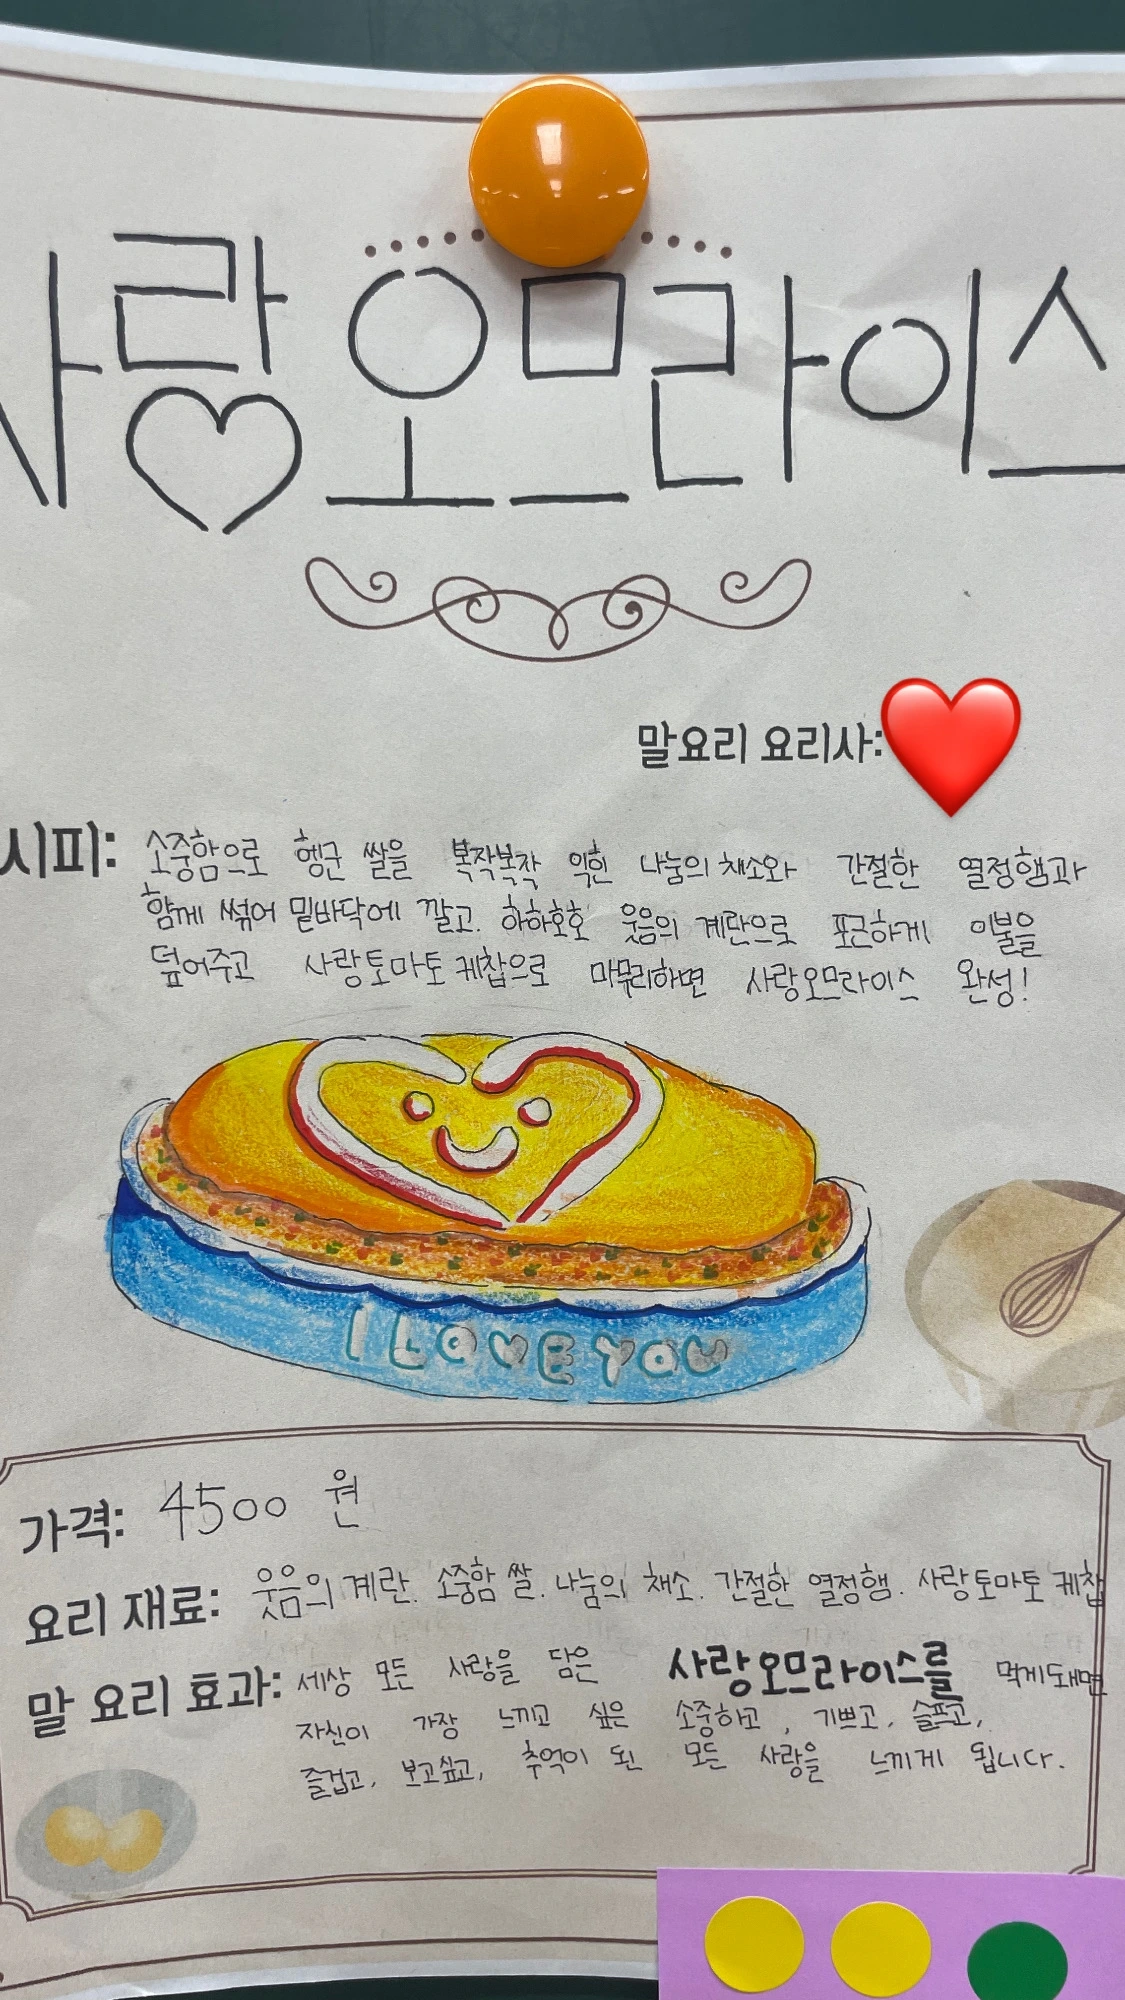 사랑오므라이스
말요리 요리사:
시피: 소중함으로 헹군 쌀을 복작복작 익힌 나눔의 채소와 간절한 열정햄과
함께 섞어 밑바닥에 깔고. 하하호호 웃음의 계란으로 포근하게 이불을
덮어주고 사랑토마토케찹으로 마무리하면 사랑오므라이스 완성!
I LOVE YOU
가격: 4500 원
요리 재료: 웃음의 계란. 소중함 쌀. 나눔의 채소. 간절한 열정햄. 사랑토마토 케찹
말 요리 효과: 세상 모든 사랑을 담은 사랑오므라이스를 먹게돼면
자신이 가장 느끼고 싶은 소중하고, 기쁘고, 슬프고,
즐겁고, 보고싶고, 추억이 된 모든 사랑을 느끼게 됩니다.